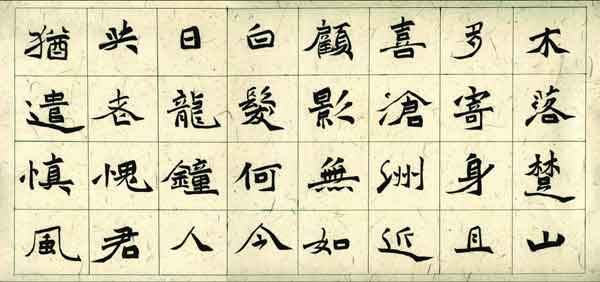 木落楚山
多寄身且
喜滄洲近
顧影無如
白髮何今
日龍鐘人
共老愧君
猶遣慎風